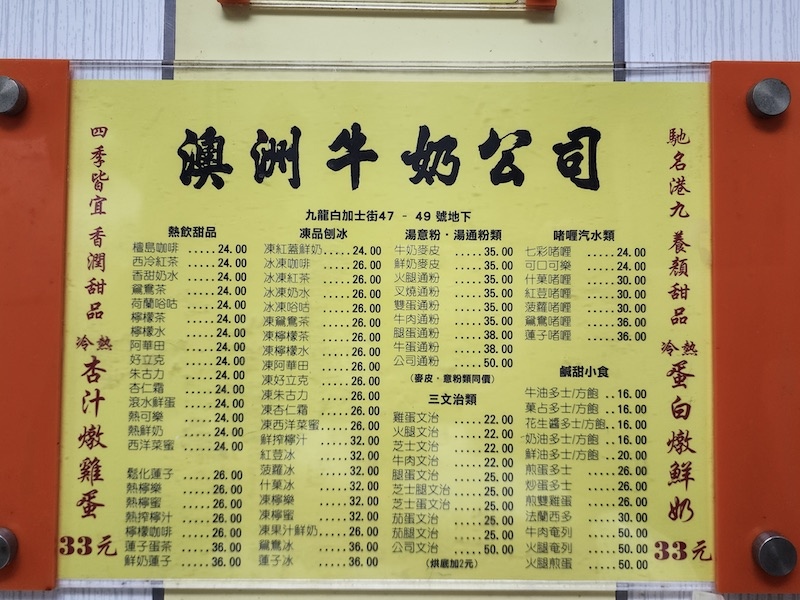 澳洲牛奶公司
九龍白加士街47 - 49 號地下
四季皆宜 香潤甜品
冷熱 杏汁燉雞蛋
33元
熱飲甜品
檀島咖啡.....24.00
西冷紅茶.....24.00
香甜奶水.....24.00
鴛鴦茶.....24.00
荷蘭哈咕.....24.00
檸檬茶.....24.00
檸檬水.....24.00
阿華田.....24.00
好立克.....24.00
朱古力.....24.00
杏仁霜.....24.00
滾水鮮蛋.....24.00
熱可樂.....24.00
熱鮮奶.....24.00
西洋菜蜜.....24.00
鬆化蓮子.....26.00
熱檸樂.....26.00
熱檸蜜.....26.00
熱搾檸汁.....26.00
檸檬咖啡.....26.00
蓮子蛋茶.....36.00
鮮奶蓮子.....36.00
凍品刨冰
凍紅蓋鮮奶.....24.00
冰凍咖啡.....26.00
冰凍紅茶.....26.00
冰凍奶水.....26.00
冰凍哈咕.....26.00
凍鴛鴦茶.....26.00
凍檸檬茶.....26.00
凍檸檬水.....26.00
凍阿華田.....26.00
凍好立克.....26.00
凍朱古力.....26.00
凍杏仁霜.....26.00
凍西洋菜蜜.....26.00
鮮搾檸汁.....32.00
紅荳冰.....32.00
菠蘿冰.....32.00
什菓冰.....32.00
凍檸樂.....32.00
凍檸蜜.....32.00
凍果汁鮮奶.....26.00
鴛鴦冰.....36.00
蓮子冰.....36.00
湯意粉·湯通粉類
牛奶麥皮.....35.00
鮮奶麥皮.....35.00
火腿通粉.....35.00
叉燒通粉.....35.00
雙蛋通粉.....35.00
牛肉通粉.....35.00
腿蛋通粉.....38.00
牛蛋通粉.....38.00
公司通粉.....50.00
(麥皮、意粉類同價)
三文治類
雞蛋文治.....22.00
火腿文治.....22.00
芝士文治.....22.00
牛肉文治.....22.00
腿蛋文治.....25.00
芝士腿文治.....25.00
芝士蛋文治.....25.00
茄蛋文治.....25.00
茄牛文治.....25.00
公司文治.....50.00
(烘底加2元)
啫喱汽水類
七彩啫喱.....24.00
可口可樂.....24.00
什菓啫喱.....30.00
紅荳啫喱.....30.00
菠蘿啫喱.....30.00
鴛鴦啫喱.....36.00
蓮子啫喱.....36.00
鹹甜小食
牛油多士/方飽..16.00
菓占多士/方飽..16.00
花生醬多士/方飽..16.00
奶油多士/方飽..16.00
鮮油多士/方飽..20.00
煎蛋多士.....26.00
炒蛋多士.....26.00
煎雙雞蛋.....26.00
法蘭西多.....30.00
牛肉奄列.....50.00
火腿奄列.....50.00
火腿煎蛋.....50.00
馳名港九 養顏甜品
冷熱 蛋白燉鮮奶
33元